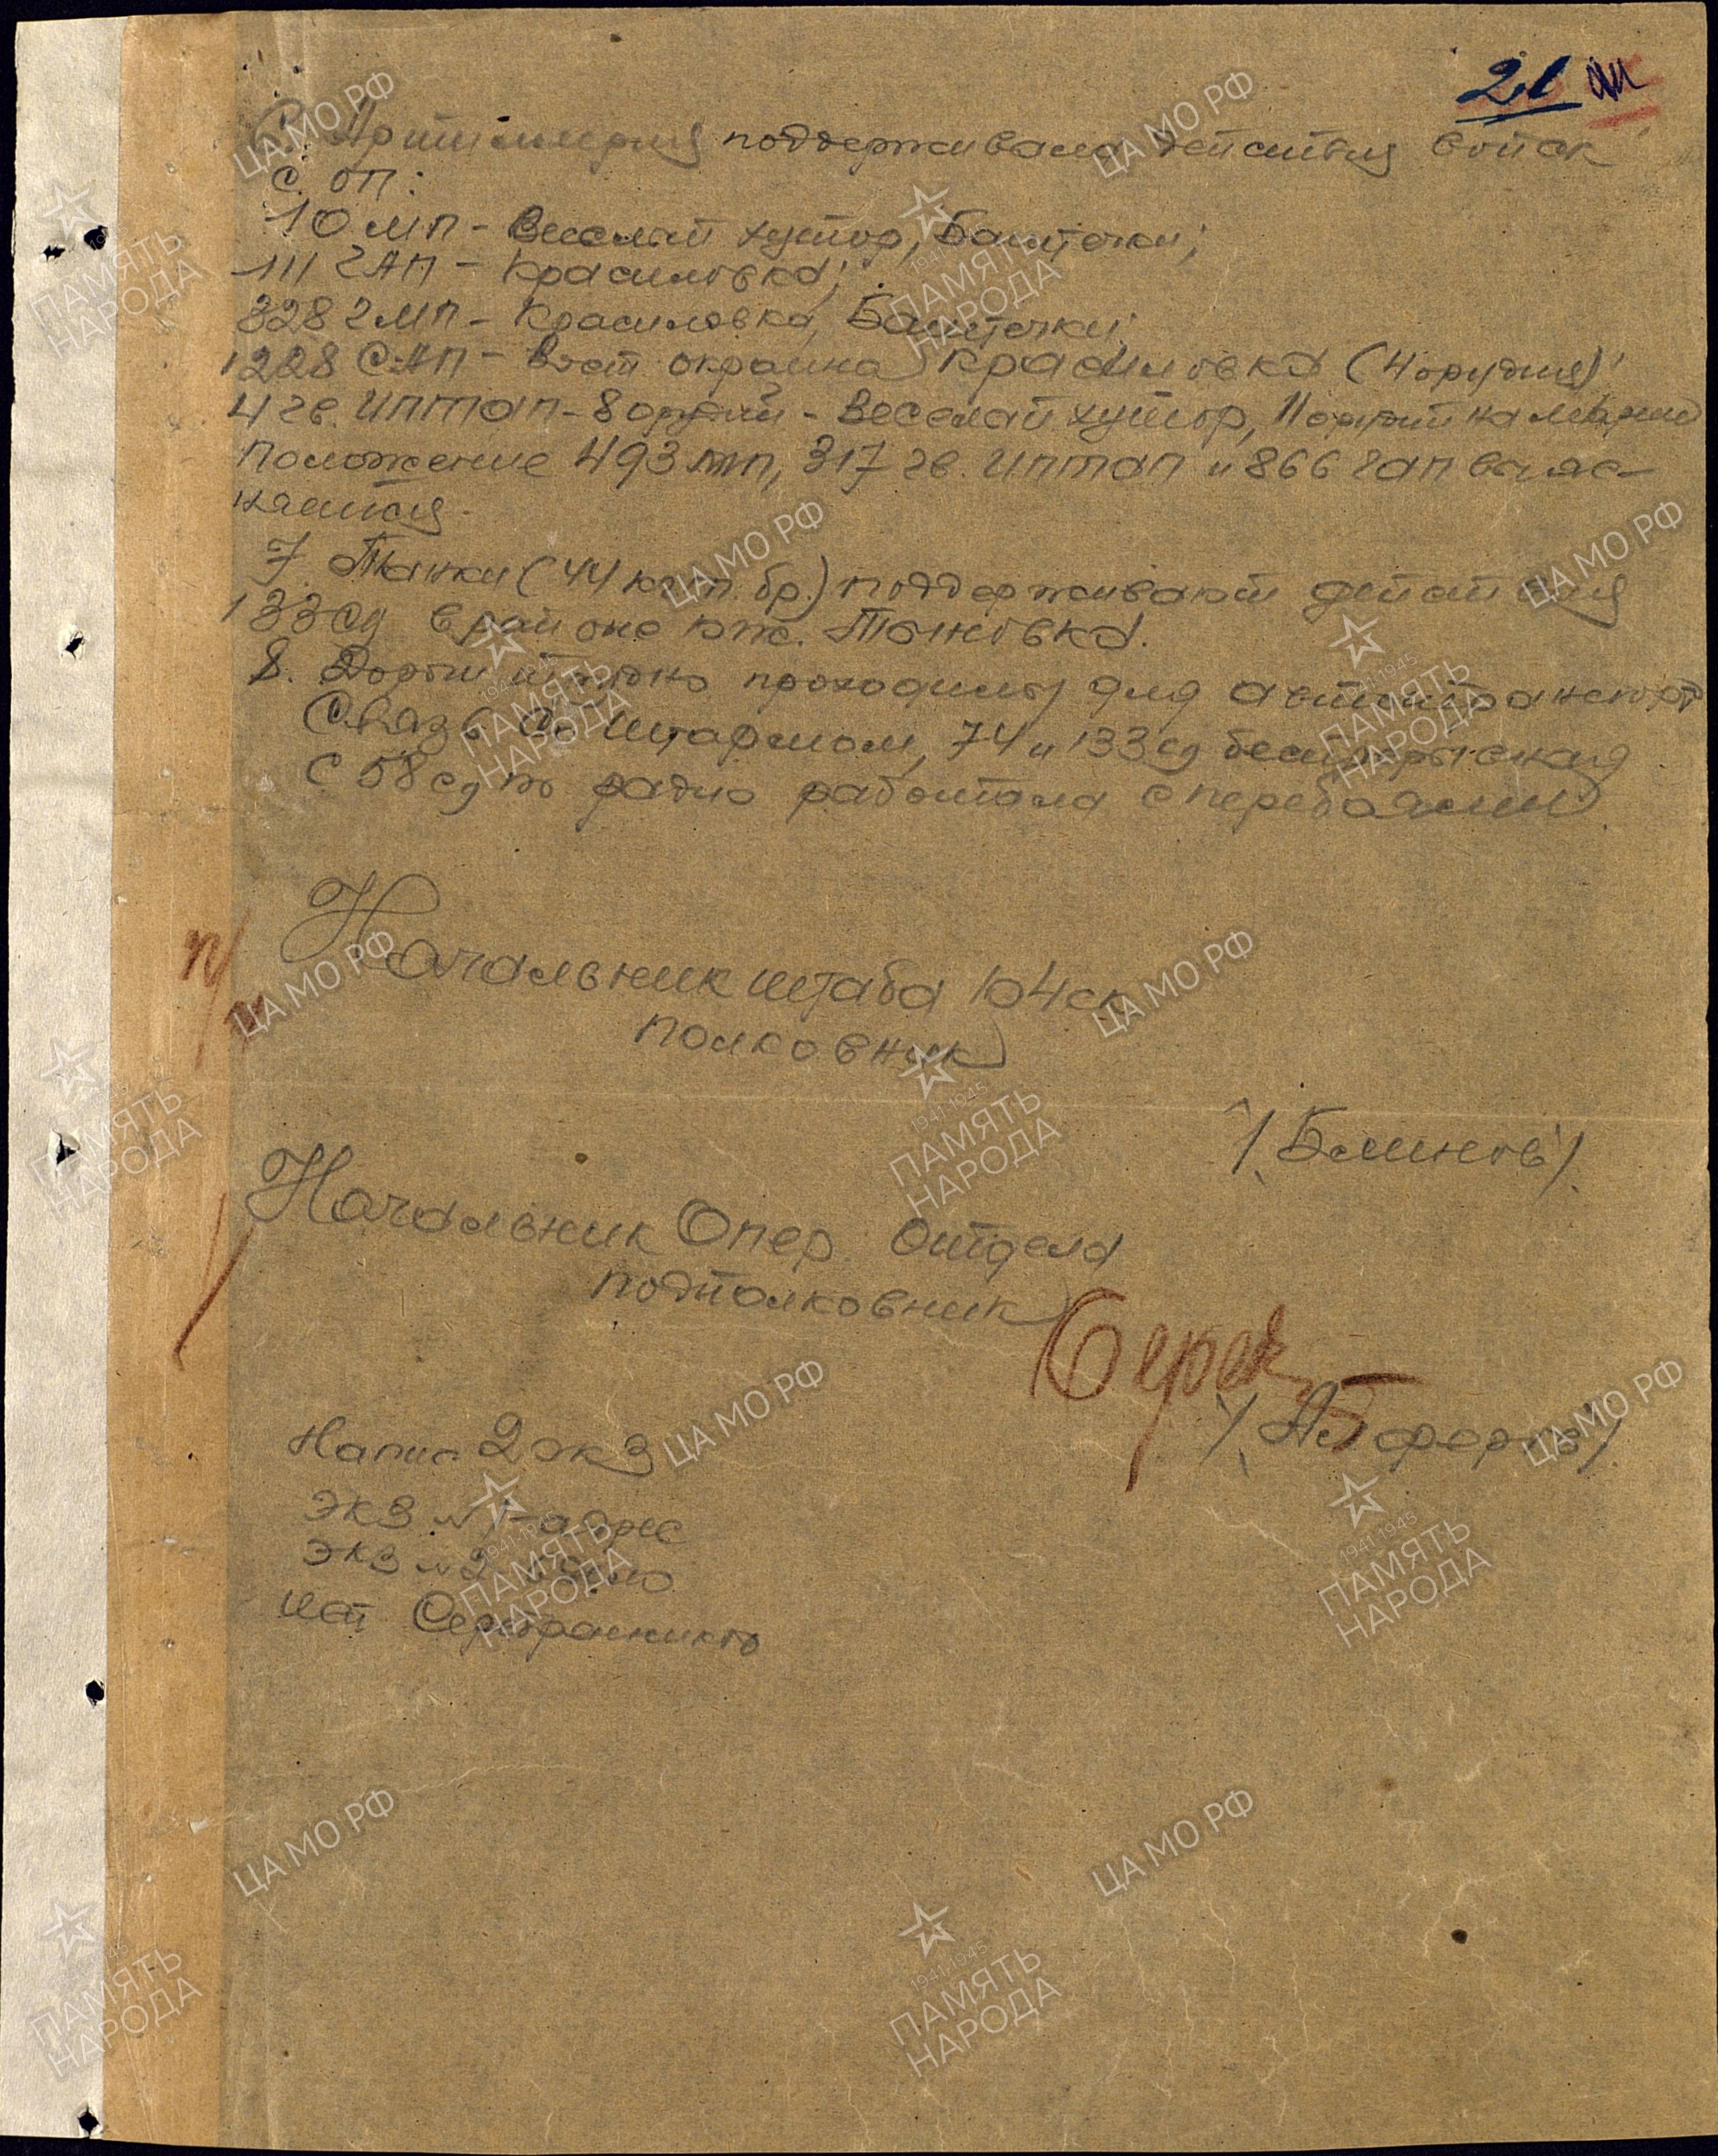 21
6. Артиллерия поддерживала действия войск
с ОП:
10 мп - Веселый хутор, Баштечки;
111 гАП - Красиловка;
328 гмп - Красиловка, Баштечки;
1228 САП - Вост окраина Красиловка (4 орудия)
4 гв. ИПТАП - 8 орудий - Веселый хутор, 11 орудий на марше
Положение 493 мп, 317 гв. иптап и 866 гап выяс-
няется.
7. Танки (44 тбр.) поддерживают действия
133 сд в районе юж. Тыновка.
8. Дороги проходимы для автотранспорта
Связь со Штармом, 74 и 133 сд бесперебойная
С 58 сд по радио работала с перебоями
Начальник штаба 104 ск
полковник
/Блинов/
Начальник Опер. Отдела
подполковник
Напис 2 экз
экз №1 - адрес
экз №2 - дело
исп
ЦА МО РФ
ПАМЯТЬ НАРОДА
1941-1945